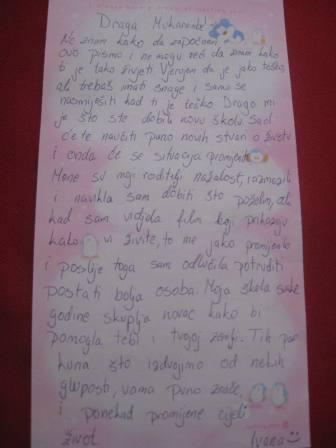 Draga Mukarenko!
Ne znam kako da započnem
ovo pismo i ne mogu reć da znam kako
ti je tako živjeti. Vjerujem da je jako teško,
ali trebaš imati snage i samo se
nasmiješiti kad ti je teško. Drago mi
je što ste dobili novu školu sad
ćete naučiti puno novih stvari o životu
i onda će se situacija promjeniti.
Mene su moji roditelji nažalost, razmazili
i navikla sam dobiti što poželim, ali
kad sam vidjela film koji prikazuje
kako vi živite, to me jako promjenilo
i poslije toga sam odlučila potruditi
postati bolja osoba. Moja škola svake
godine skuplja novac kako bi
pomogla tebi i tvojoj zemlji. Tih par
kuna što izdvojimo od nekih
gluposti, vama puno znače,
i ponekad promijene cijeli
život
Ivana